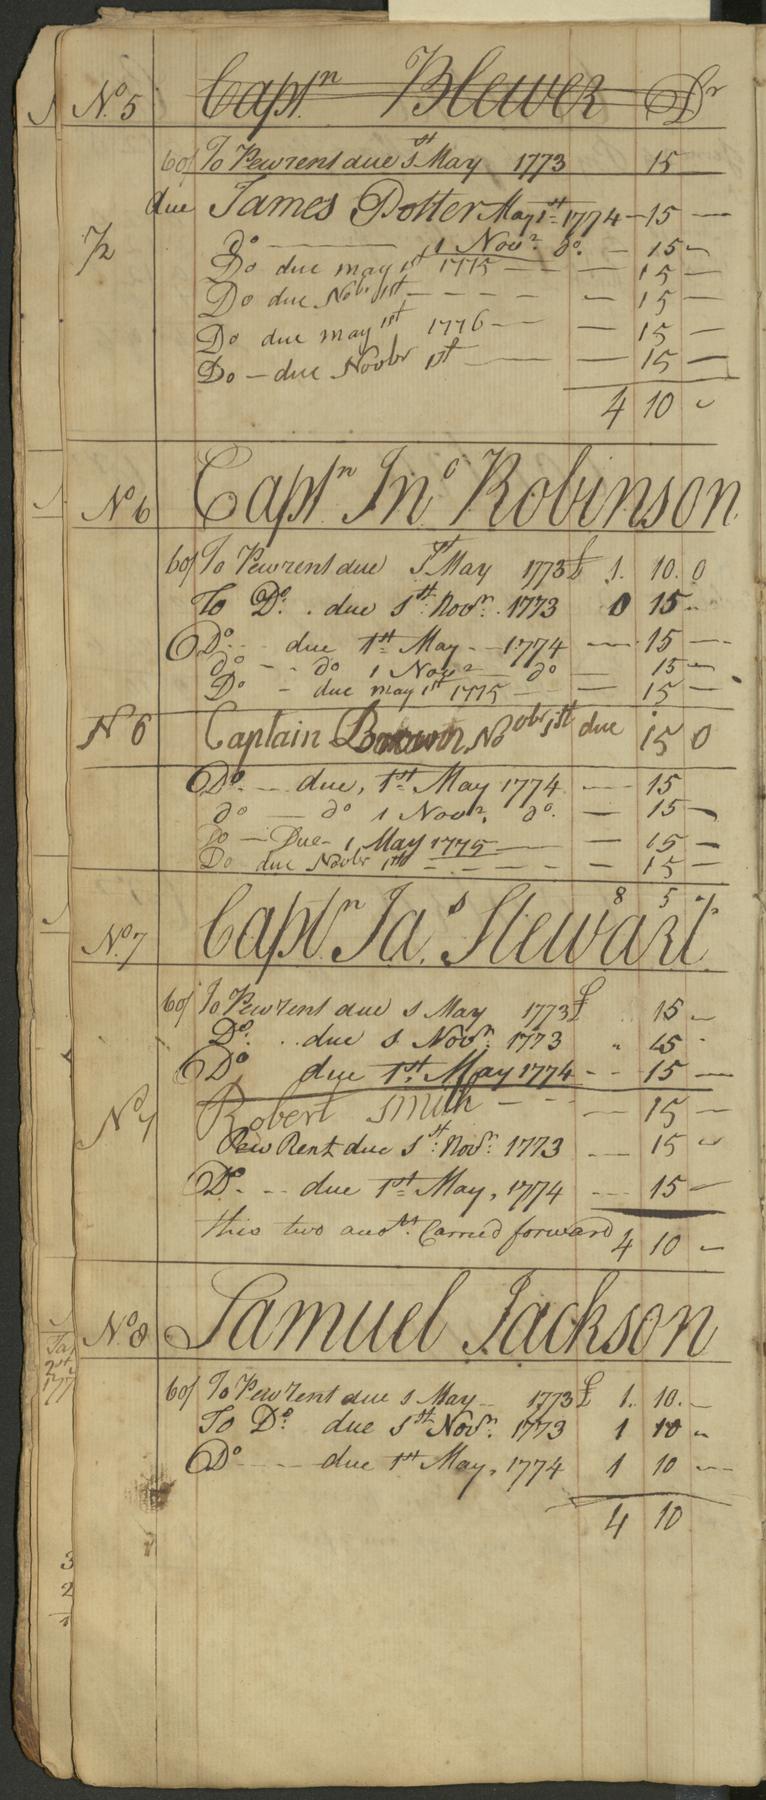 No. 5 Captn. Blewer Dr
60/ To Pew rent due 1st May 1773 15
due James Potter May 1st 1774 — 15 —
1/2 do — 1 Novr. do. — 15 —
Do due may 1st 1775 — — 15 —
Do due Nobr 1st — — — — 15 —
Do due may 1st 1776 — — 15 —
Do — due Novbr 1st — — 15 —
4 10 —
No. 6 Captn Jno Robinson
60/ To Pew rent due 1st May 1773 £ 1. 10. 0
To Do. . due 1st: Novr. . 1773 0 15 ..
Do. - - due 1st May - - 1774 — 15 —
do - - do 1 Novr do — 15 —
Do - due may 1st 1775 — — 15 —
No 6 Captain Novbr 1st due 15 0
Do. - - due, 1st May 1774 — 15
do — do 1 Novr, do. — 15 —
Do — Due - 1 May 1775 — — 15 —
Do due Novbr 1st — — — — 15 —
8 5 ..
No. 7 Captn. Jas. Stewart
60/ To Pew rent due 1 May 1773 £ .. 15 —
Do. . . due 1. Novr: 1773 " 15 -
Do due 1st. May 1774 - - 15 —
No 7 Robert Smith — — — 15 —
Pew Rent due 1st: Novr: 1773 — 15 "
Do. - - due 1st May, 1774 — 15 —
this two amots. Carried forward 4 10 —
No. 8 Samuel Jackson
60/ To Pew rent due 1 May — 1773 £ 1. 10. —
To Do. due 1st Novr. 1773 1 10 "
Do — - due 1st May, 1774 1 10 —
4 10